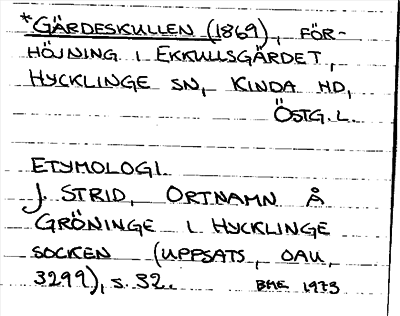 *GÄRDESKULLEN (1869), FÖR-
HÖJNING I EKKULLSGÄRDET,
HYCKLINGE SN, KINDA HD,
ÖSTG. L.
ETYMOLOGI
J. STRID, ORTNAMN Å
GRÖNINGE I HYCKLINGE
SOCKEN (UPPSATS, OAU,
3299), S. 32.
BME 1973